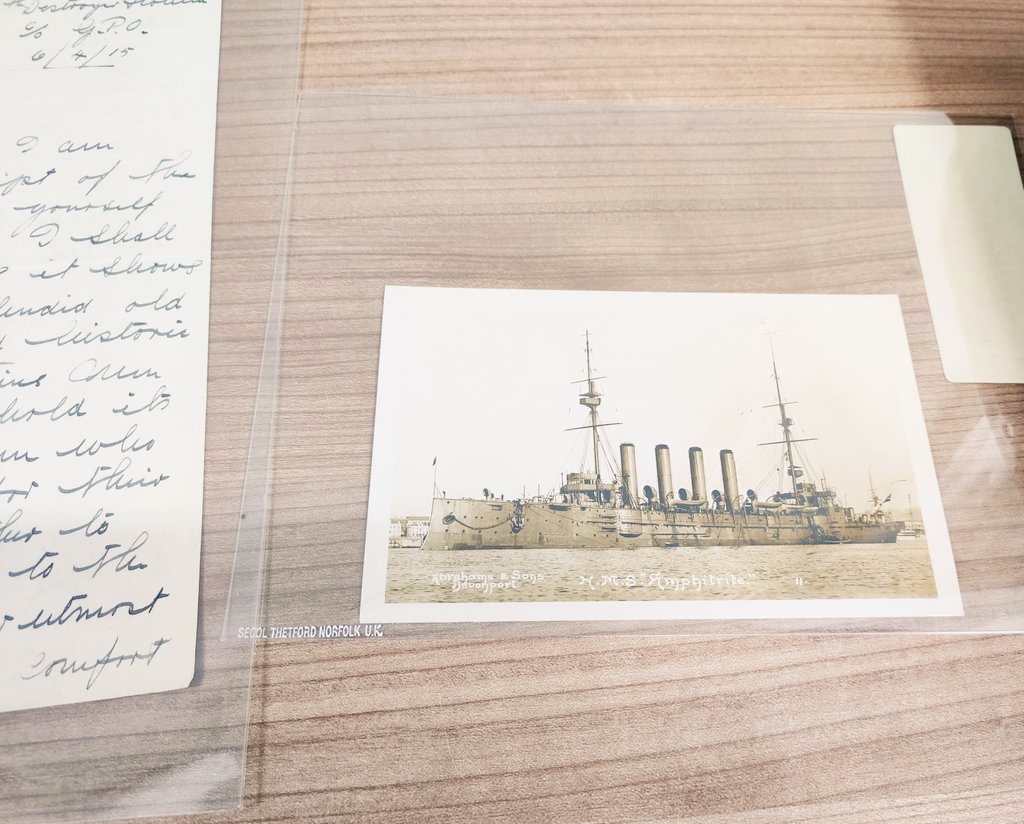 Destroyer
c/o G.P.O.
6/4/15
I am
ipt of the
yourself
I shall
it shows
lendid old
historic
hold its
who
for their
to
to the
utmost
comfort
Abrahams & Sons
Devonport.
H.M.S "Amphitrite."
11.
SECOL THETFORD NORFOLK U.K.